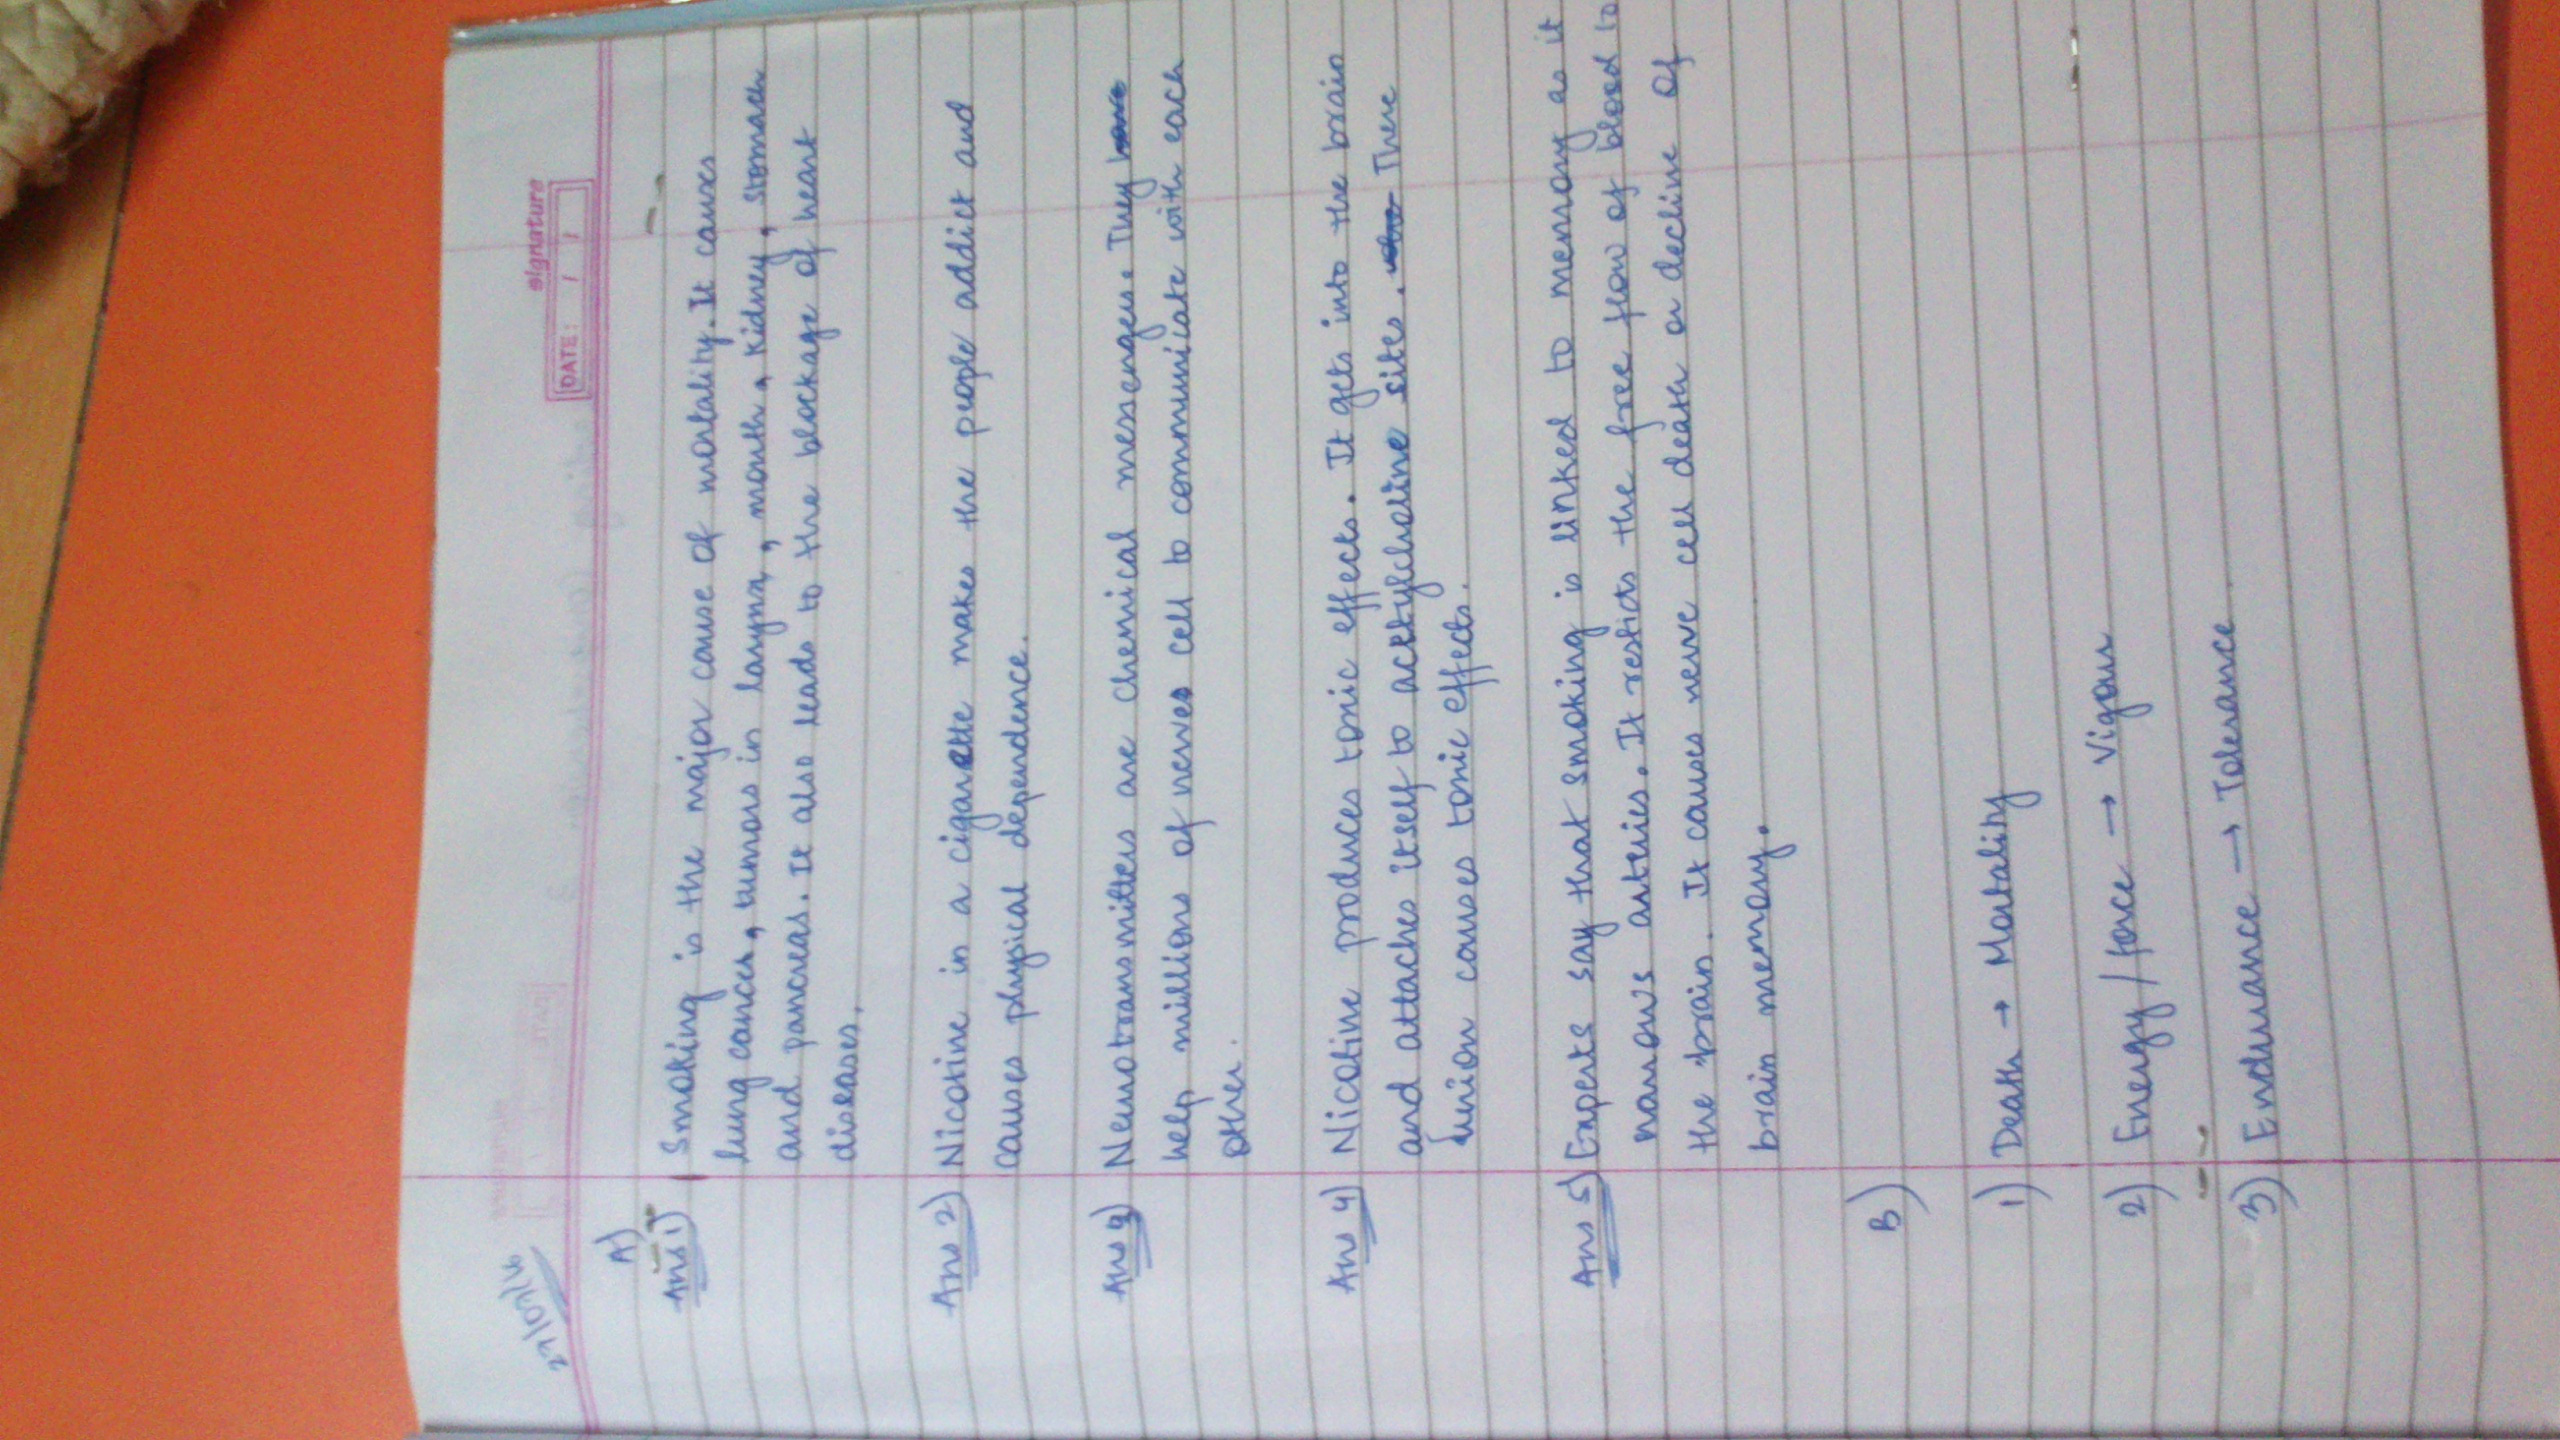 27/07/16
signature
DATE: / /
A)
Ans 1) Smoking is the major cause of mortality. It causes
lung cancer, tumors in larynx, mouth, kidney, stomach
and pancreas. It also leads to the blockage of heart
diseases.
Ans 2) Nicotine in a cigarette makes the people addict and
causes physical dependence.
Ans 3) Neurotransmitters are chemical messengers. They have
help millions of nerves cell to communicate with each
other.
Ans 4) Nicotine produces tonic effects. It gets into the brain
and attaches itself to acetylcholine sites. There
union causes tonic effects.
Ans 5) Experts say that smoking is linked to memory as it
narrows arteries. It resticts the free flow of blood to
the brain. It causes nerve cell death or decline of
brain memory.
B)
1) Death → Mortality
2) Energy / force → Vigour
3) Endurance → Tolerance